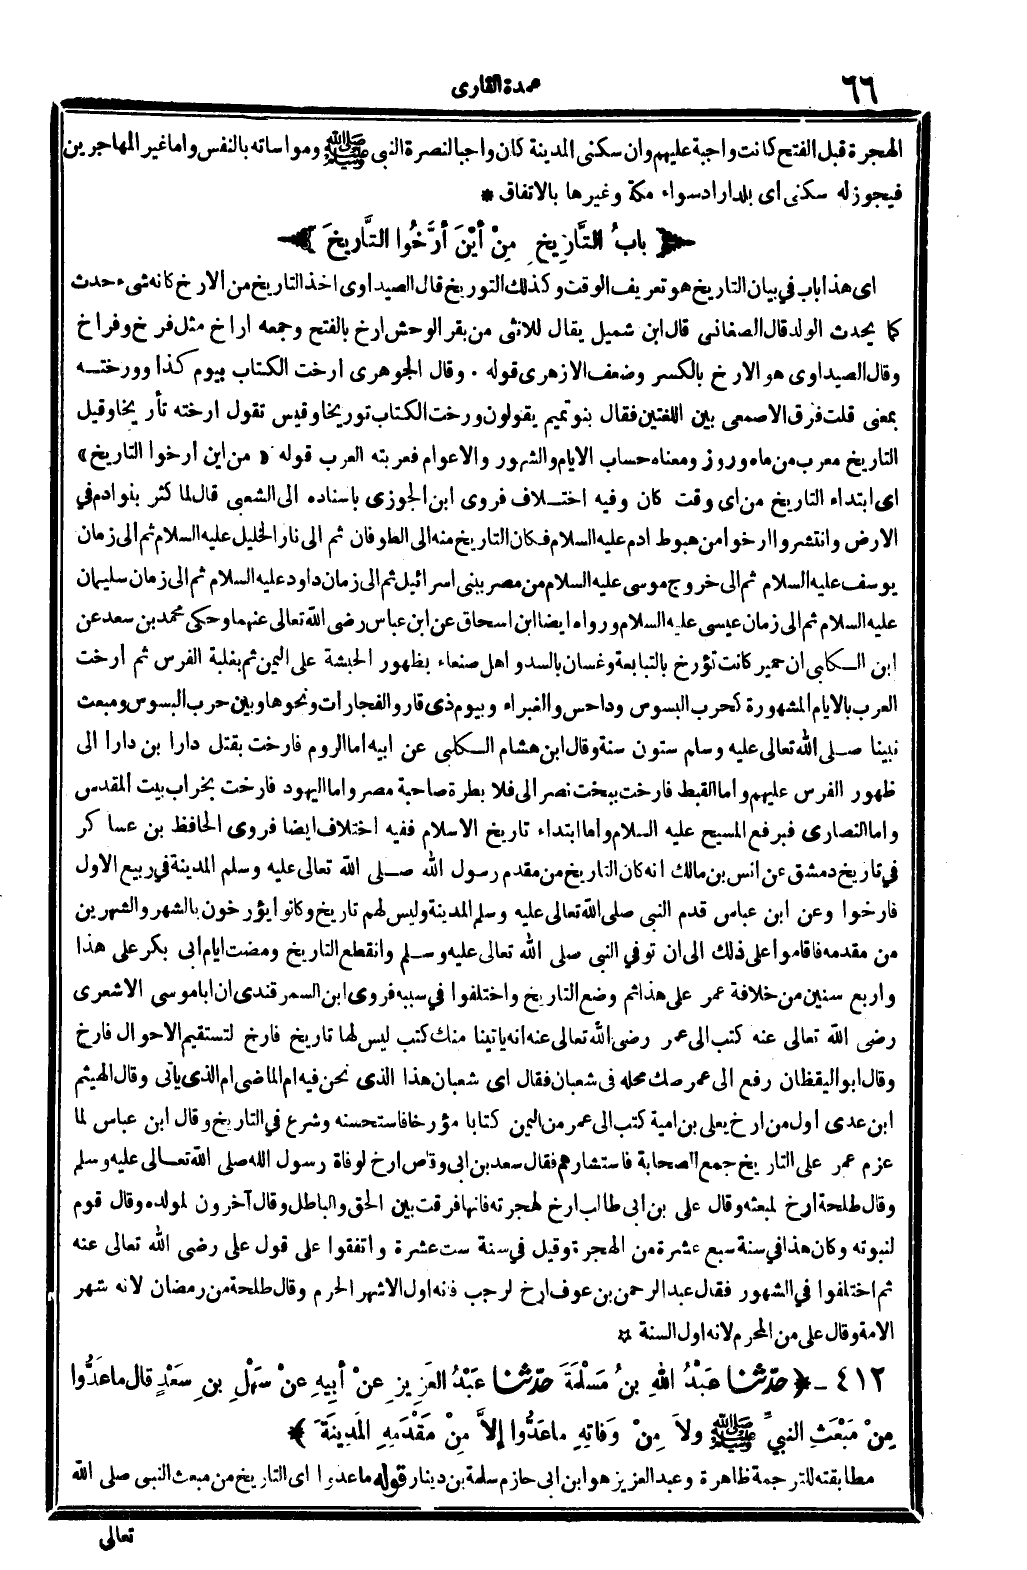 ٦٦
عمدة القارى
الهجرة قبل الفتح كانت واجبة عليهم وان سكنى المدينة كان واجبا لنصرة النبى ﷺ ومواساته بالنفس واما غير المهاجرين
فيجوز له سكنى اى بلد ارادسواء مكة وغيرها بالاتفاق *
﴿ بابُ التَّارِيخِ مِنْ أيْنَ أرَّخُوا التَّاريخَ ﴾
اى هذا باب في بيان التاريخ هو تعريف الوقت وكذلك التوريخ قال الصيداوى اخذ التاريخ من الارخ كانه شىء حدث
كما يحدث الولد قال الصغانى قال ابن شميل يقال للانثى من بقر الوحش ارخ بالفتح وجمعه اراخ مثل فرخ وفراخ
وقال الصيداوى هو الارخ بالكسر وضعف الازهرى قوله . وقال الجوهرى ارخت الكتاب بيوم كذا وورختـه
بمعنى قلت فرق الاصمعى بين اللغتين فقال بنو تميم يقولون ورخت الكتاب توريخا وقيس تقول ارخته تأريخا وقيل
التاريخ معرب من ماه وروز ومعناه حساب الايام والشهور والاعوام فعربته العرب قوله « من اين أرخوا التاريخ »
اى ابتداء التاريخ من اى وقت كان وفيه اختـلاف فروى ابن الجوزى باسناده الى الشعبى قال لما كثر بنو ادم في
الارض وانتشروا ارخوا من هبوط ادم عليه السلام فكان التاريخ منه الى الطوفان ثم الى نار الخليل عليه السلام ثم الى زمان
يوسف عليه السلام ثم الى خروج موسى عليه السلام من مصر ببنى اسرائيل ثم الى زمان داود عليه السلام ثم الى زمان سليمان
عليه السلام ثم الى زمان عيسى عليه السلام ورواه ايضا ابن اسحاق عن ابن عباس رضى الله تعالى عنهما وحكى محمد بن سعد عن
ابن الـكلبى ان حمير كانت تؤرخ بالتبابعة وغسان بالسد واهل صنعاء بظهور الحبشة على اليمن ثم بغلبة الفرس ثم أرخت
العرب بالايام المشهورة كحرب البسوس وداحس والغبراء وبيوم ذى قار والفجارات ونحوها وبين حرب البسوس ومبعث
نبينا صـلى الله تعالى عليه وسلم ستون سنة وقال ابن هشام الـكلبى عن ابيه اما الروم فارخت بقتل دارا بن دارا الى
ظهور الفرس عليهم واما القبط فارخت ببخت نصر الى فلا بطرة صاحبة مصر واما اليهود فارخت بخراب بيت المقدس
واما النصارى فبرفع المسيح عليه السلام واما ابتداء تاريخ الاسلام ففيه اختلاف ايضا فروى الحافظ بن عساكر
في تاريخ دمشق عن انس بن مالك انه كان التاريخ من مقدم رسول الله صـلى الله تعالى عليه وسلم المدينة في ربيع الاول
فارخوا وعن ابن عباس قدم النبى صلى الله تعالى عليه وسلم المدينة وليس لهم تاريخ وكانوا يؤرخون بالشهر والشهرين
من مقدمه فاقاموا على ذلك الى ان توفي النبى صلى الله تعالى عليه وسـلم وانقطع التاريخ ومضت ايام ابى بكر على هذا
واربع سنين من خلافة عمر على هذا ثم وضع التاريخ واختلفوا في سببه فروى ابن السمرقندى ان اباموسى الاشعرى
رضى الله تعالى عنه كتب الى عمر رضى الله تعالى عنه انه ياتينا منك كتب ليس لها تاريخ فارخ لتستقيم الاحوال فارخ
وقال ابو اليقظان رفع الى عمر صك محله فى شعبان فقال اى شعبان هذا الذى نحن فيه ام الماضى ام الذى يأتى وقال الهيثم
ابن عدى اول من ارخ يعلى بن امية كتب الى عمر من اليمن كتابا مؤرخا فاستحسنه وشرع في التاريخ وقال ابن عباس لما
عزم عمر على التاريخ جمع الصحابة فاستشارهم فقال سعد بن ابى وقاص ارخ لوفاة رسول الله صلى الله تعـالى عليه وسلم
وقال طلحة أرخ لمبعثه وقال على بن ابى طالب ارخ لهجرته فانها فرقت بين الحق والباطل وقال آخرون لمولده وقال قوم
لنبوته وكان هذا في سنة سبع عشرة من الهجرة وقيل في سنة ست عشرة واتفقوا على قول على رضى الله تعالى عنه
ثم اختلفوا في الشهور فقال عبد الرحمن بن عوف ارخ لرجب فانه اول الاشهر الحرم وقال طلحة من رمضان لانه شهر
الامة وقال على من المحرم لانه اول السنة *
٤١٢ - ﴿ حدّثنا عَبْدُ اللهِ بنُ مَسْلَمَةَ حدّثنا عَبْدُ العَزِيزِ عنْ أبِيهِ عنْ سَهْلِ بنِ سَعْدٍ قال ماعَدُّوا
مِنْ مَبْعَثِ النبيِّ ﷺ ولاَ مِنْ وَفاتِهِ ماعَدُّوا إلاَّ مِنْ مَقْدَمِهِ المَدِينَةَ ﴾
مطابقته للترجمة ظاهرة وعبد العزيز هو ابن ابى حازم سلمة بن دينار قوله ماعدوا اى التاريخ من مبعث النبى صلى الله
تعالى